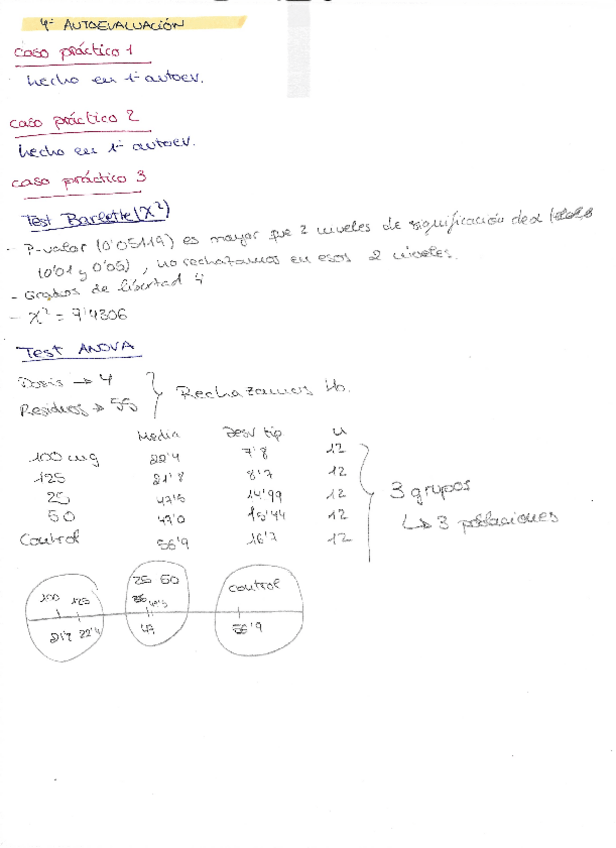 4ª AUTOEVALUACIÓN
caso práctico 1
hecho en 1ª autoev.
caso práctico 2
hecho en 1ª autoev.
caso práctico 3
Test Barlette (X²)
- P-valor (0'05119) es mayor que 2 niveles de significación de α
(0'01 y 0'05), no rechazamos en esos 2 niveles.
- Grados de libertad 4
- X² = 7'4306
Test ANOVA
Dosis → 4
Residuos → 55
Rechazamos Ho.
Media Desv tip n
100 mg 22'4 7'8 12
125 21'8 8'7 12
25 47'5 14'99 12
50 47'0 15'44 12
Control 56'9 16'7 12
3 grupos
↳ 3 poblaciones
100 125 25 50 control
21'7 22'4 47 56'9